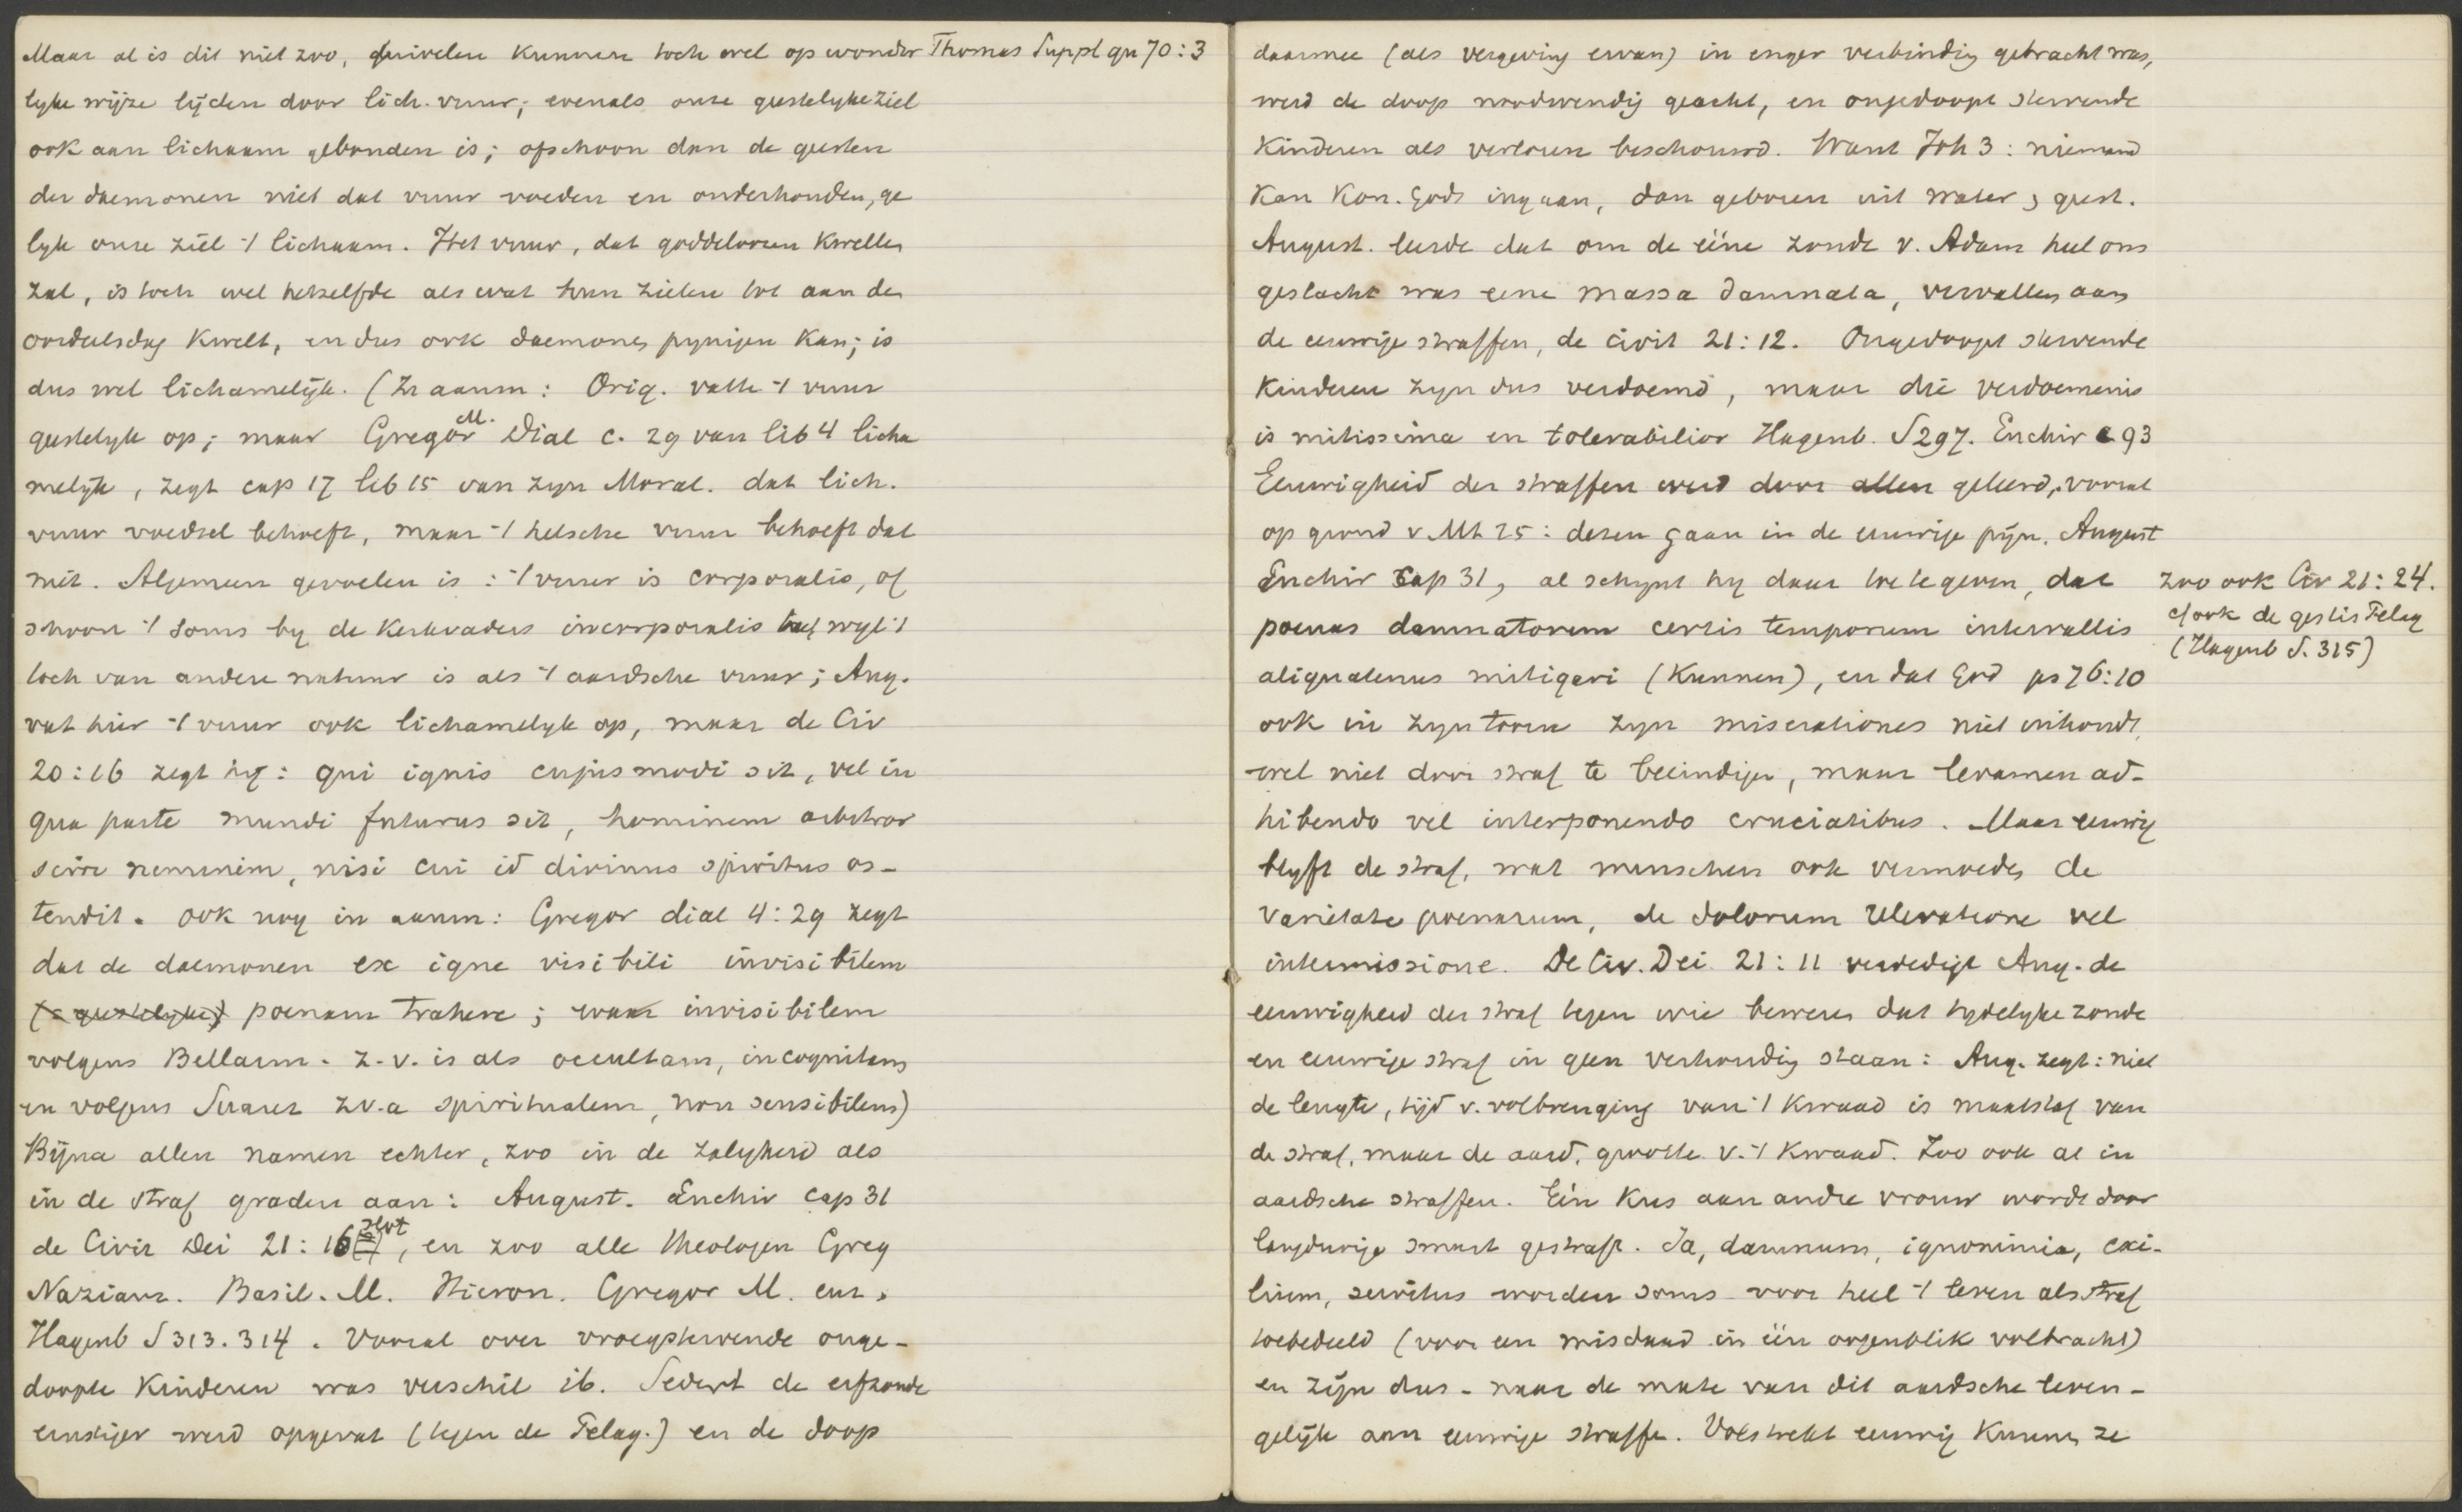 Maar al is dit niet zoo, duivelen kunnen toch wel op wonder Thomas Suppl qu 70:3
lyke wijze lijden door lich. vuur; evenals onze geestelyke ziel
ook aan lichaam gebonden is; ofschoon dan de geesten
der daemonen niet dat vuur voeden en onderhouden, ge
lyk onze ziel 't lichaam. Het vuur, dat goddeloozen kwellen
zal, is toch wel hetzelfde als wat hun zielen tot aan den
oordeelsdag kwelt, en dus ook daemones pynigen kan; is
dus wel lichamelijk. (In aanm: Orig. vatte 't vuur
geestelyk op; maar Gregor M. Dial c. 29 van lib 4 licha
melijk, zegt cap 17 lib 15 van zyn Moral. dat lich.
vuur voedsel behoeft, maar 't helsche vuur behoeft dat
niet. Algemeen gevoelen is: 't vuur is corporalis, of
schoon 't soms by de kerkvaders incorporalis heet wyl 't
toch van andere natuur is als 't aardsche vuur; Aug.
vat hier 't vuur ook lichamelyk op, maar de Civ
20:16 zegt hij: qui ignis cujusmodi sit, vel in
qua parte mundi futurus sit, hominem arbitror
scire neminem, nisi cui id divinus spiritus os-
tendit. ook nog in aanm: Gregor dial 4:29 zegt
dat de daemonen ex igne visibili invisibilem
(= geestelyke) poenam trahere; waar invisibilem
volgens Bellarm. z.v. is als occultam, incognitam
en volgens Suarez z.v.a spiritualem, non sensibilem)
Bijna allen namen echter, zoo in de zaligheid als
in de straf graden aan: August. Enchir cap 31
de Civit Dei 21:16 slot, en zoo alle theologen Greg
Nazianz. Basil. M. Hieron. Gregor M. enz.
Hagenb S 313. 314. Vooral over vroegstervende onge-
doopte kinderen was verschil ib. Sedert de erfzonde
ernstiger werd opgevat (tegen de Pelag.) en de doop
daarmee (als vergeving ervan) in enger verbinding gebracht was,
werd de doop noodwendig geacht, en ongedoopt stervende
kinderen als verloren beschouwd. Want Joh 3: niemand
kan Kon. Gods ingaan, dan geboren uit water & geest.
August. leerde dat om de ééne zonde v. Adam heel ons
geslacht was eene massa damnata, vervallen aan
de eeuwige straffen, de civit 21:12. Ongedoopt stervende
kinderen zyn dus verdoemd, maar die verdoemenis
is mitissima en tolerabilior Hagenb. S 297. Enchir c 93
Eeuwigheid der straffen werd door allen geleerd, vooral
op grond v Mt 25: dezen gaan in de eeuwige pijn. August
Enchir cap 31, al schynt hy daar toe te geven, dat
zoo ook Civ 21:24.
cf ook de gestis Pelag
(Hagenb S. 315)
poenas damnatorum certis temporum intervallis
aliquatenus mitigari (kunnen), en dat God ps 76:10
ook in zyn toorn zyn miserationes niet inhoudt,
wel niet door straf te beëindigen, maar levamen ad-
hibendo vel interponendo cruciatibus. Maar eeuwig
blyft de straf, wat menschen ook vermoeden de
varietate poenarum, de dolorum relevatione vel
intermissione. De Civ. Dei 21:11 verdedigt Aug. de
eeuwigheid der straf tegen wie beweren dat tydelyke zonde
en eeuwige straf in geen verhouding staan: Aug. zegt: niet
de lengte, tijd v. volbrenging van 't kwaad is maatstaf van
de straf, maar de aard, grootte v. 't kwaad. Zoo ook al in
aardsche straffen. Eén kus aan andre vrouw wordt door
langdurige smart gestraft. Ja, damnum, ignominia, exi-
lium, servitus worden soms voor heel 't leven als straf
toebedeeld (voor een misdaad in één oogenblik volbracht)
en zijn dus - naar de mate van dit aardsche leven -
gelijk aan eeuwige straffe. Volstrekt eeuwig kunnen ze